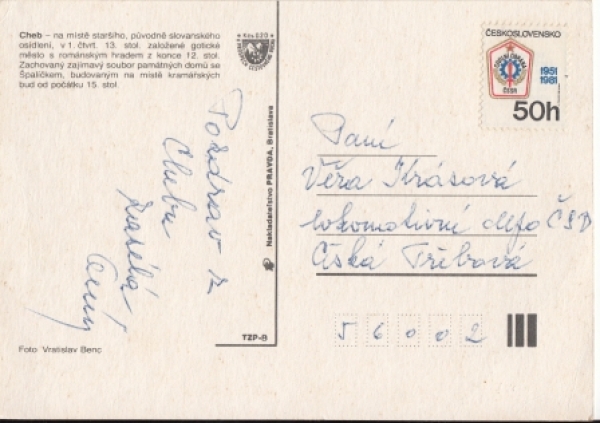 Cheb – na místě staršího, původně slovanského
osídlení, v 1. čtvrt. 13. stol. založené gotické
město s románským hradem z konce 12. stol.
Zachovaný zajímavý soubor památných domů se
Špalíčkem, budovaným na místě kramářských
bud od počátku 15. stol.
Pozdrav z
Chebu
zasílá
Nakladateľstvo PRAVDA, Bratislava
TZP-B
Foto Vratislav Benc
ČESKOSLOVENSKO
ČSSR
1951
1981
50h
Paní
Věra Krásová
lokomotivní depo ČSD
Česká Třebová
56002